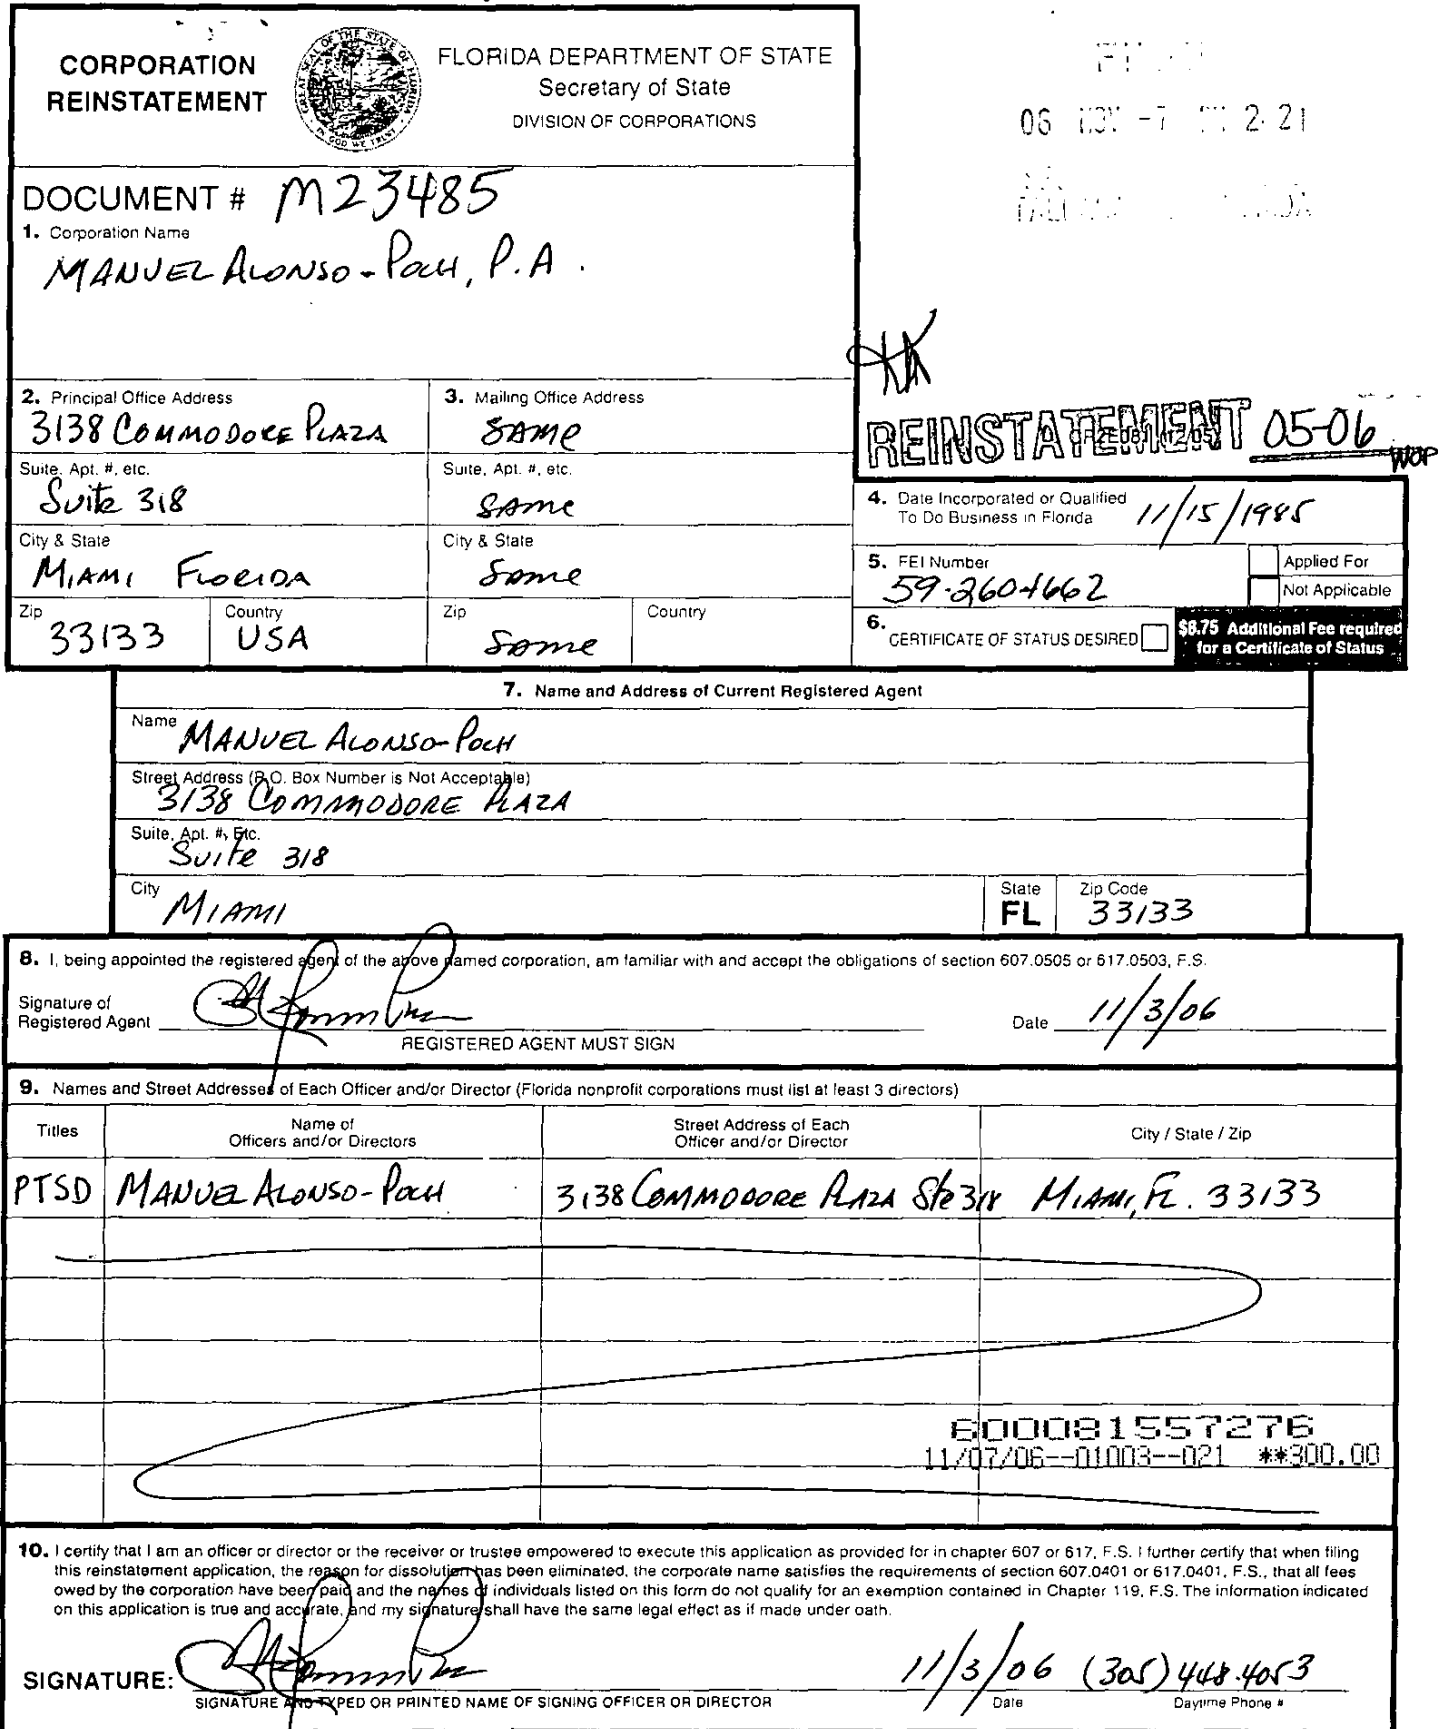 CORPORATION
REINSTATEMENT
GREAT SEAL OF THE STATE OF FLORIDA
IN GOD WE TRUST
FLORIDA DEPARTMENT OF STATE
Secretary of State
DIVISION OF CORPORATIONS
06 NOV -7 2:21
DOCUMENT # M23485
1. Corporation Name
MANUEL ALONSO-POCH, P.A.
REINSTATEMENT 05-06
CR2E081 (12/05)
WOP
2. Principal Office Address
3138 COMMODORE PLAZA
3. Mailing Office Address
SAME
Suite, Apt. #, etc.
Suite 318
Suite, Apt. #, etc.
SAME
City & State
MIAMI FLORIDA
City & State
Same
Zip
33133
Country
USA
Zip
Same
Country
4. Date Incorporated or Qualified
To Do Business in Florida 11/15/1985
5. FEI Number
59-2604662
Applied For
Not Applicable
6.
CERTIFICATE OF STATUS DESIRED
$8.75 Additional Fee required
for a Certificate of Status
7. Name and Address of Current Registered Agent
Name MANUEL ALONSO-POCH
Street Address (P.O. Box Number is Not Acceptable)
3138 COMMODORE PLAZA
Suite, Apt. #, Etc.
Suite 318
City MIAMI
State
FL
Zip Code
33133
8. I, being appointed the registered agent of the above named corporation, am familiar with and accept the obligations of section 607.0505 or 617.0503, F.S.
Signature of
Registered Agent
Date 11/3/06
REGISTERED AGENT MUST SIGN
9. Names and Street Addresses of Each Officer and/or Director (Florida nonprofit corporations must list at least 3 directors)
Titles
Name of
Officers and/or Directors
Street Address of Each
Officer and/or Director
City / State / Zip
PTSD MANUEL ALONSO-POCH 3138 COMMODORE PLAZA Ste 318 MIAMI, FL. 33133
600081557276
11/07/06--01003--021 **300.00
10. I certify that I am an officer or director or the receiver or trustee empowered to execute this application as provided for in chapter 607 or 617, F.S. I further certify that when filing
this reinstatement application, the reason for dissolution has been eliminated, the corporate name satisfies the requirements of section 607.0401 or 617.0401, F.S., that all fees
owed by the corporation have been paid and the names of individuals listed on this form do not qualify for an exemption contained in Chapter 119, F.S. The information indicated
on this application is true and accurate, and my signature shall have the same legal effect as if made under oath.
SIGNATURE: 11/3/06 (305) 448-4053
SIGNATURE AND TYPED OR PRINTED NAME OF SIGNING OFFICER OR DIRECTOR
Date
Daytime Phone #